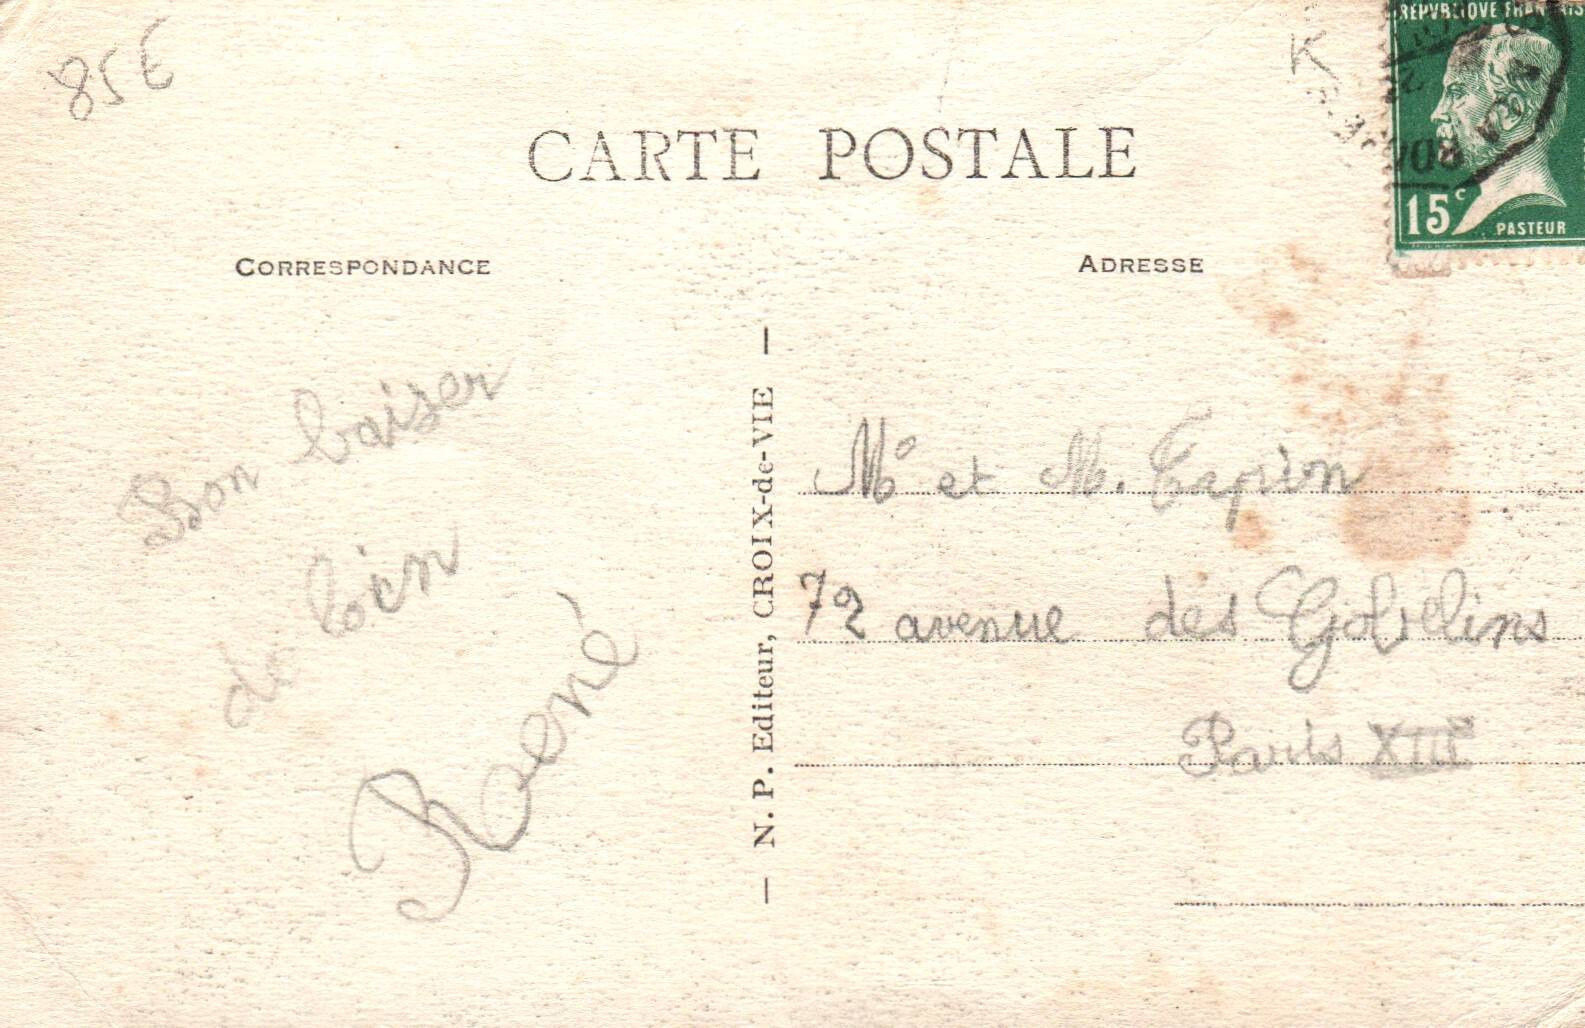 85E
K
REPVBLIQVE FRANÇAISE
15c
PASTEUR
CARTE POSTALE
CORRESPONDANCE
ADRESSE
Bon baiser
de loin
René
— N. P. Editeur, CROIX-de-VIE —
Me et M. Tapion
72 avenue des Gobelins
Paris XIIIe